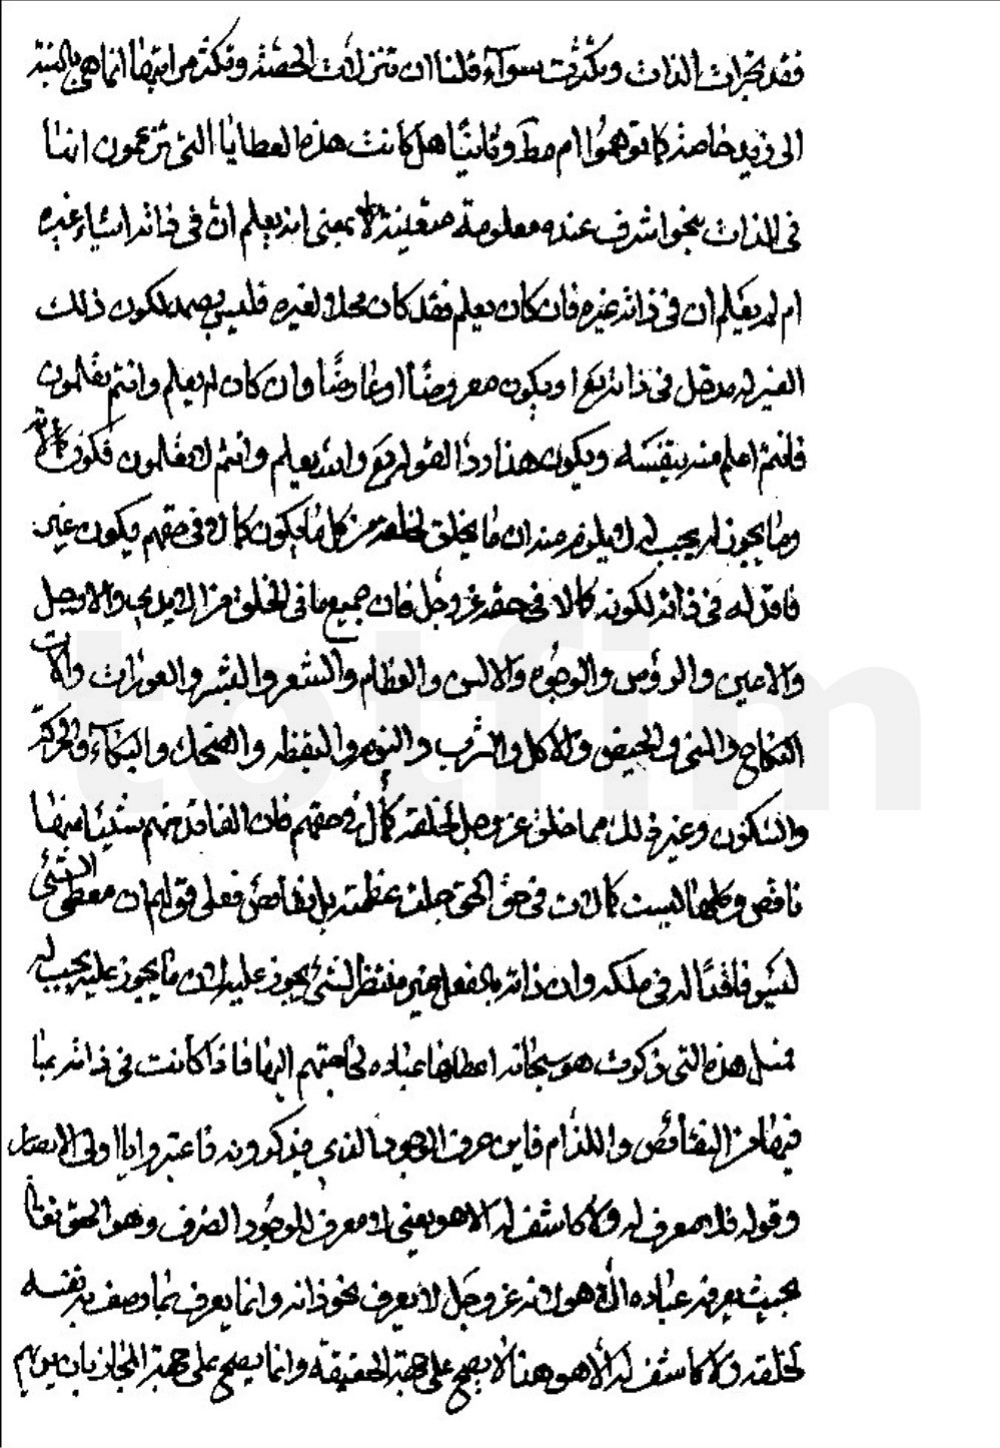 فقد تجزات الذات وتكثرت سوآء قلنا ان تنزلات الحصة وتكثر مراتبها انما هي بالنسبة
الى زيد خاصة كما توهموا ام مط وثانيًا هل كانت هذه العطايا التي تزعمون انها
في الذات بنحو اشرف عنده معلومة متعينة بمعنى انه يعلم ان في ذاته اشياء غيره
ام لم يعلم ان في ذاته غيره فان كان يعلم فقد كان محلا لغيره فليس بصمد لكون ذلك
الغير له مدخل في ذاته تع او يكون معروضًا او عارضًا وان كان لم يعلم وانتم تعلمون
فانتم اعلم منه بنفسه ويكون هذا ردا لقوله تع والله يعلم وانتم لا تعلمون فكون
وما يجوز له يجب له يلزم منه ان ما يخلق لخلقه من كل ما يكون كمالا في حقهم يكون غير
فاقد له في ذاته لكونه كمالا في حقه عز وجل فان جميع ما في الخلق من الايدي والارجل
والاعين والرؤس والوجوه والالسن والعظام والشعر والبشر والعورات والات
النكاح والمني والحيض والاكل والشرب والنوم واليقظة والضحك والبكآء والحركة
والسكون وغير ذلك مما خلق عز وجل لخلقه كمال في حقهم فان الفاقد منهم شيئا منها
ناقص وكلها ليست كمالات في حق الحق جلت عظمته بل نقائص فعلى قولهم ان معطي الشئ
ليس فاقدًا له في ملكه وان ذاته بالفعل غير منتظر لشئ يجوز عليه لان ما يجوز عليه يجب له
فمثل هذه التي ذكرت هو سبحانه اعطاها عباده لحاجتهم اليها فاذا كانت في ذاته بما
فيها من النقائص واللذام فاين صرف الوجود الذي يذكرونه فاعتبروا يا اولى الابصار
وقوله فلا معرف له ولا كاشف له الا هو يعني لا معرف للوجود الصرف وهو الحق تعالى
بحيث يعرفه عباده الا هو لانه عز وجل لا يعرف بنحو ذاته وانما يعرف بما وصف به نفسه
لخلقه ولا كاشف له الا هو هنا لا يصح على جهة الحقيقة وانما يصح على جهة المجاز بان